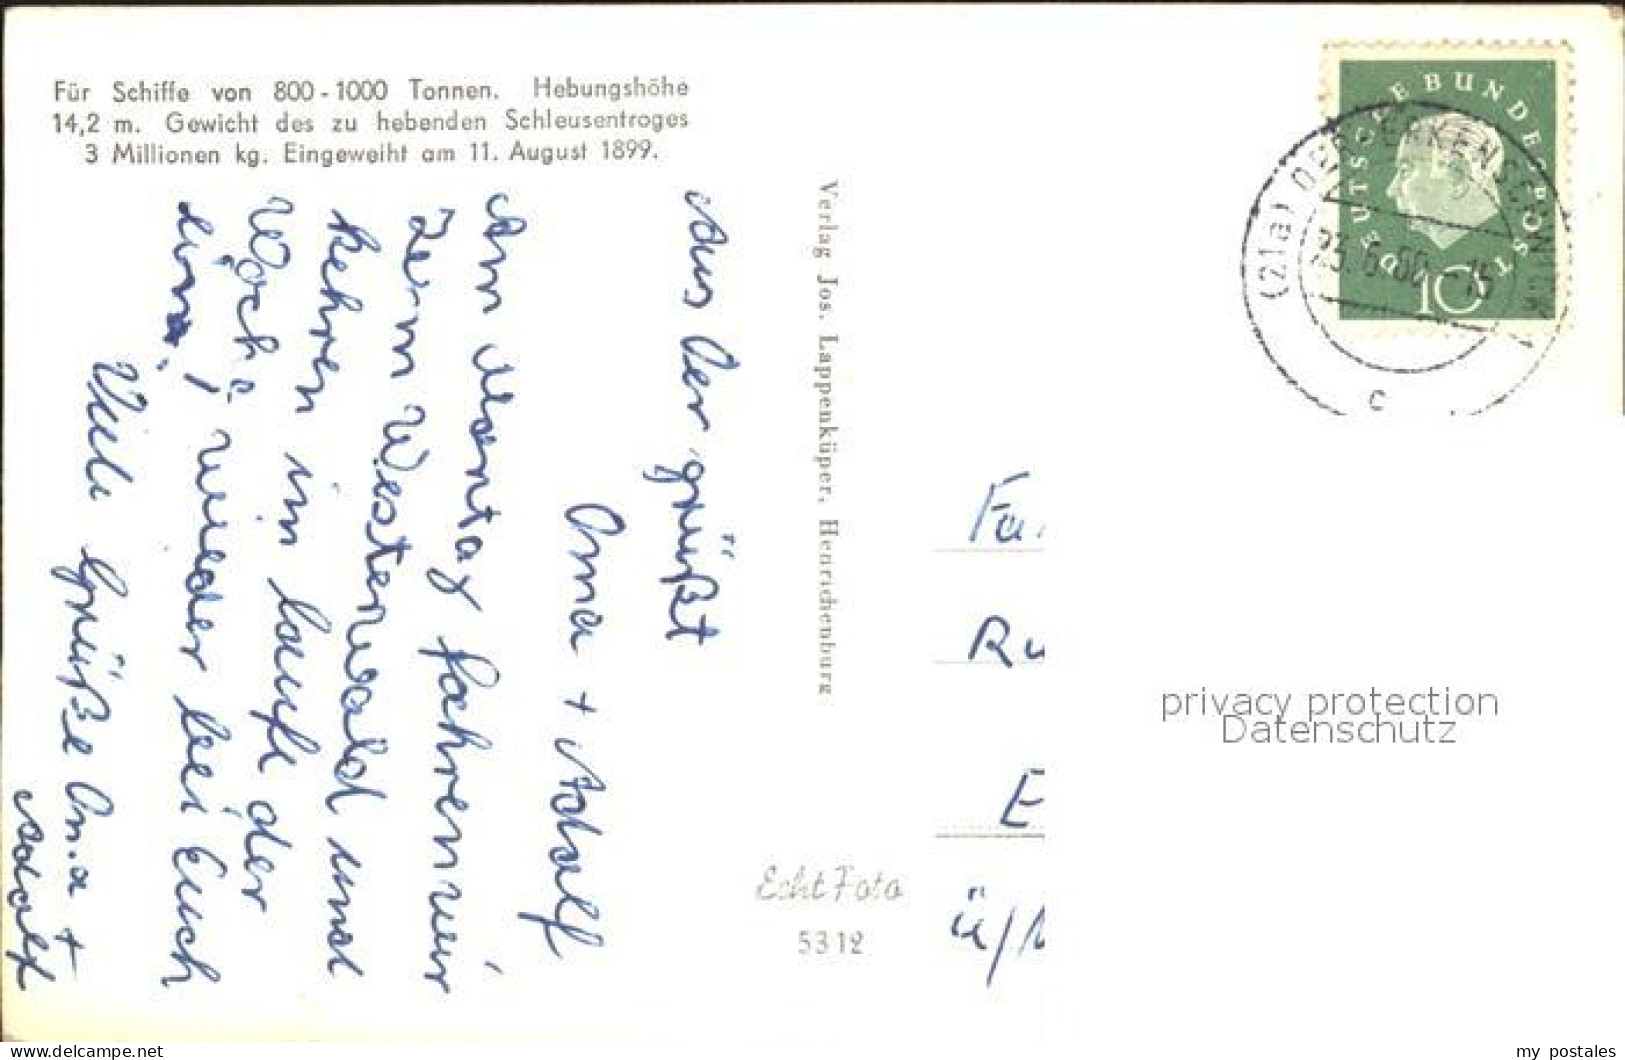 Für Schiffe von 800-1000 Tonnen. Hebungshöhe
14,2 m. Gewicht des zu hebenden Schleusentroges
3 Millionen kg. Eingeweiht am 11. August 1899.
Aus Oer grüßt
Oma + Adolf
Am Montag fahren wir
zum Westerwald und
kehren im laufe der
Woche wieder bei Euch
ein.
Viele Grüße Oma +
Adolf
Verlag Jos. Lappenküper, Henrichenburg
Echt Foto
5312
DEUTSCHE BUNDESPOST
10
(21a) OER-ERKENSCHWICK 1
23.6.60-15
c
Fa
Ru
E
ü/
privacy protection
Datenschutz
https://www.delcampe.net
my_postales